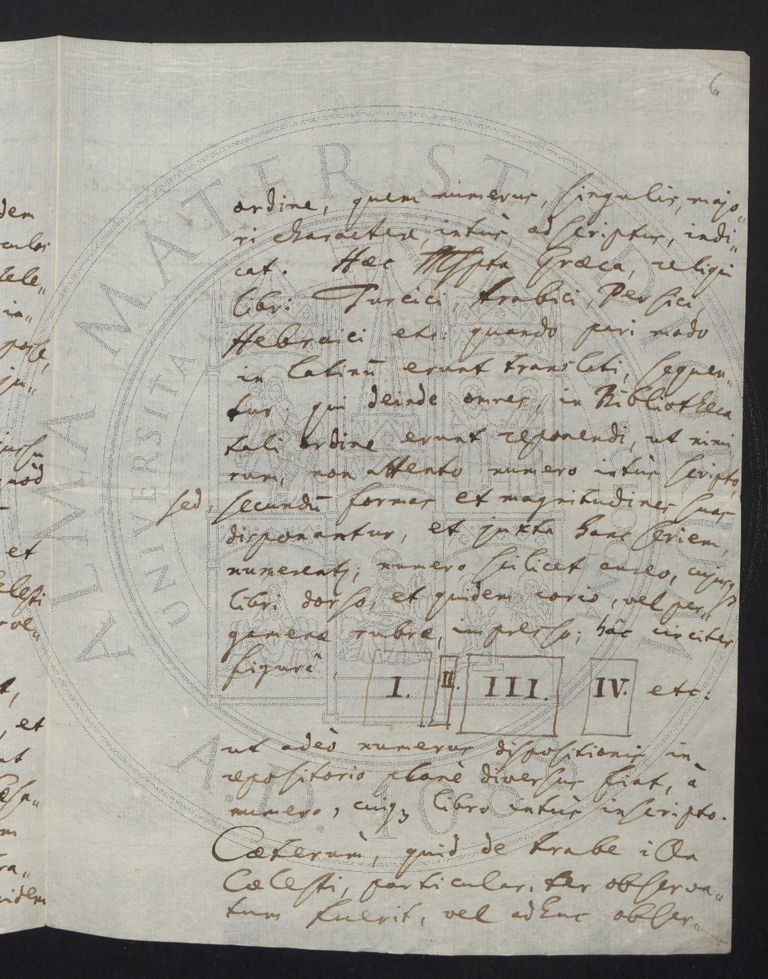 6
ordine, quem numerus, singulis, majo„
ri charactere, intùs, adscriptus, indi„
cat. Hæc MSpta Græca, reliqui
libri Turcici, Arabici, Persici
Hebraici etc: quando pari modo
in latinū erunt translati, sequen„
tur; qui deinde omnes, in Bibliotheca
tali ordine erunt reponendi, ut nimi„
rum, non attento numero intùs scripto,
sed, secundū formas et magnitudines suas
disponantur, et juxta hanc seriem,
numerentꝫ, numero scilicet aureo, cujusqꝫ
libri dorso, et quidem corio, vel per„
gamenæ rubræ, impresso; hâc circiter
figurâ,
I. II. III. IV. etc:
ut adeò numerus dispositionis in
repositorio planè diversus fiat, à
numero, cuiqꝫ libro intùs inscripto.
Cæterùm, quid de trabe illa
Cælesti, particulariter observa„
tum fuerit, vel adhuc obser„
dem
culos
cele„
in„
posse,
et
elesti
t,
, et
nt
m
ra„
uidem